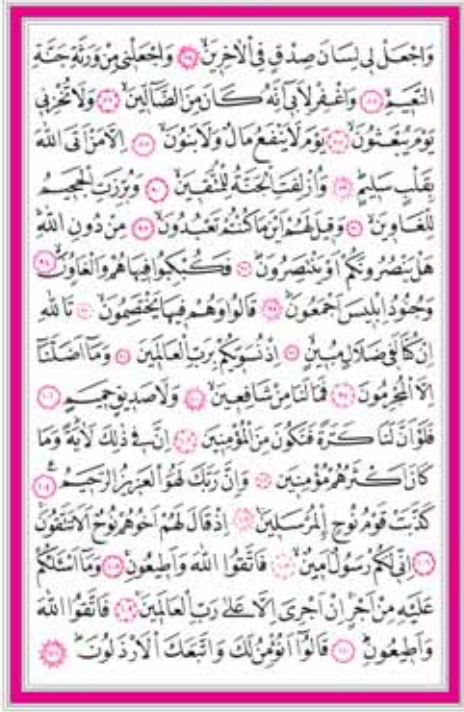 وَاجْعَلْ لِي لِسَانَ صِدْقٍ فِي الْاٰخِرِينَ وَاجْعَلْنِي مِنْ وَرَثَةِ جَنَّةِ
النَّعِيمِ وَاغْفِرْ لِاَبِٓي اِنَّهُ كَانَ مِنَ الضَّٓالِّينَ وَلَا تُخْزِنِي
يَوْمَ يُبْعَثُونَ يَوْمَ لَا يَنْفَعُ مَالٌ وَلَا بَنُونَ اِلَّا مَنْ اَتَى اللّٰهَ
بِقَلْبٍ سَلِيمٍ وَاُزْلِفَتِ الْجَنَّةُ لِلْمُتَّقِينَ وَبُرِّزَتِ الْجَحِيمُ
لِلْغَاوِينَ وَقِيلَ لَهُمْ اَيْنَ مَا كُنْتُمْ تَعْبُدُونَ مِنْ دُونِ اللّٰهِ
هَلْ يَنْصُرُونَكُمْ اَوْ يَنْتَصِرُونَ فَكُبْكِبُوا فِيهَا هُمْ وَالْغَاوُنَ
وَجُنُودُ اِبْلِيسَ اَجْمَعُونَ قَالُوا وَهُمْ فِيهَا يَخْتَصِمُونَ تَاللّٰهِ
اِنْ كُنَّا لَفِي ضَلَالٍ مُبِينٍ اِذْ نُسَوِّيكُمْ بِرَبِّ الْعَالَمِينَ وَمَٓا اَضَلَّنَٓا
اِلَّا الْمُجْرِمُونَ فَمَا لَنَا مِنْ شَافِعِينَ وَلَا صَدِيقٍ حَمِيمٍ
فَلَوْ اَنَّ لَنَا كَرَّةً فَنَكُونَ مِنَ الْمُؤْمِنِينَ اِنَّ فِي ذٰلِكَ لَاٰيَةً وَمَا
كَانَ اَكْثَرُهُمْ مُؤْمِنِينَ وَاِنَّ رَبَّكَ لَهُوَ الْعَزِيزُ الرَّحِيمُ
كَذَّبَتْ قَوْمُ نُوحٍ الْمُرْسَلِينَ اِذْ قَالَ لَهُمْ اَخُوهُمْ نُوحٌ اَلَا تَتَّقُونَ
اِنِّي لَكُمْ رَسُولٌ اَمِينٌ فَاتَّقُوا اللّٰهَ وَاَطِيعُونِ وَمَٓا اَسْـَٔلُكُمْ
عَلَيْهِ مِنْ اَجْرٍ اِنْ اَجْرِيَ اِلَّا عَلٰى رَبِّ الْعَالَمِينَ فَاتَّقُوا اللّٰهَ
وَاَطِيعُونِ قَالُٓوا اَنُؤْمِنُ لَكَ وَاتَّبَعَكَ الْاَرْذَلُونَ